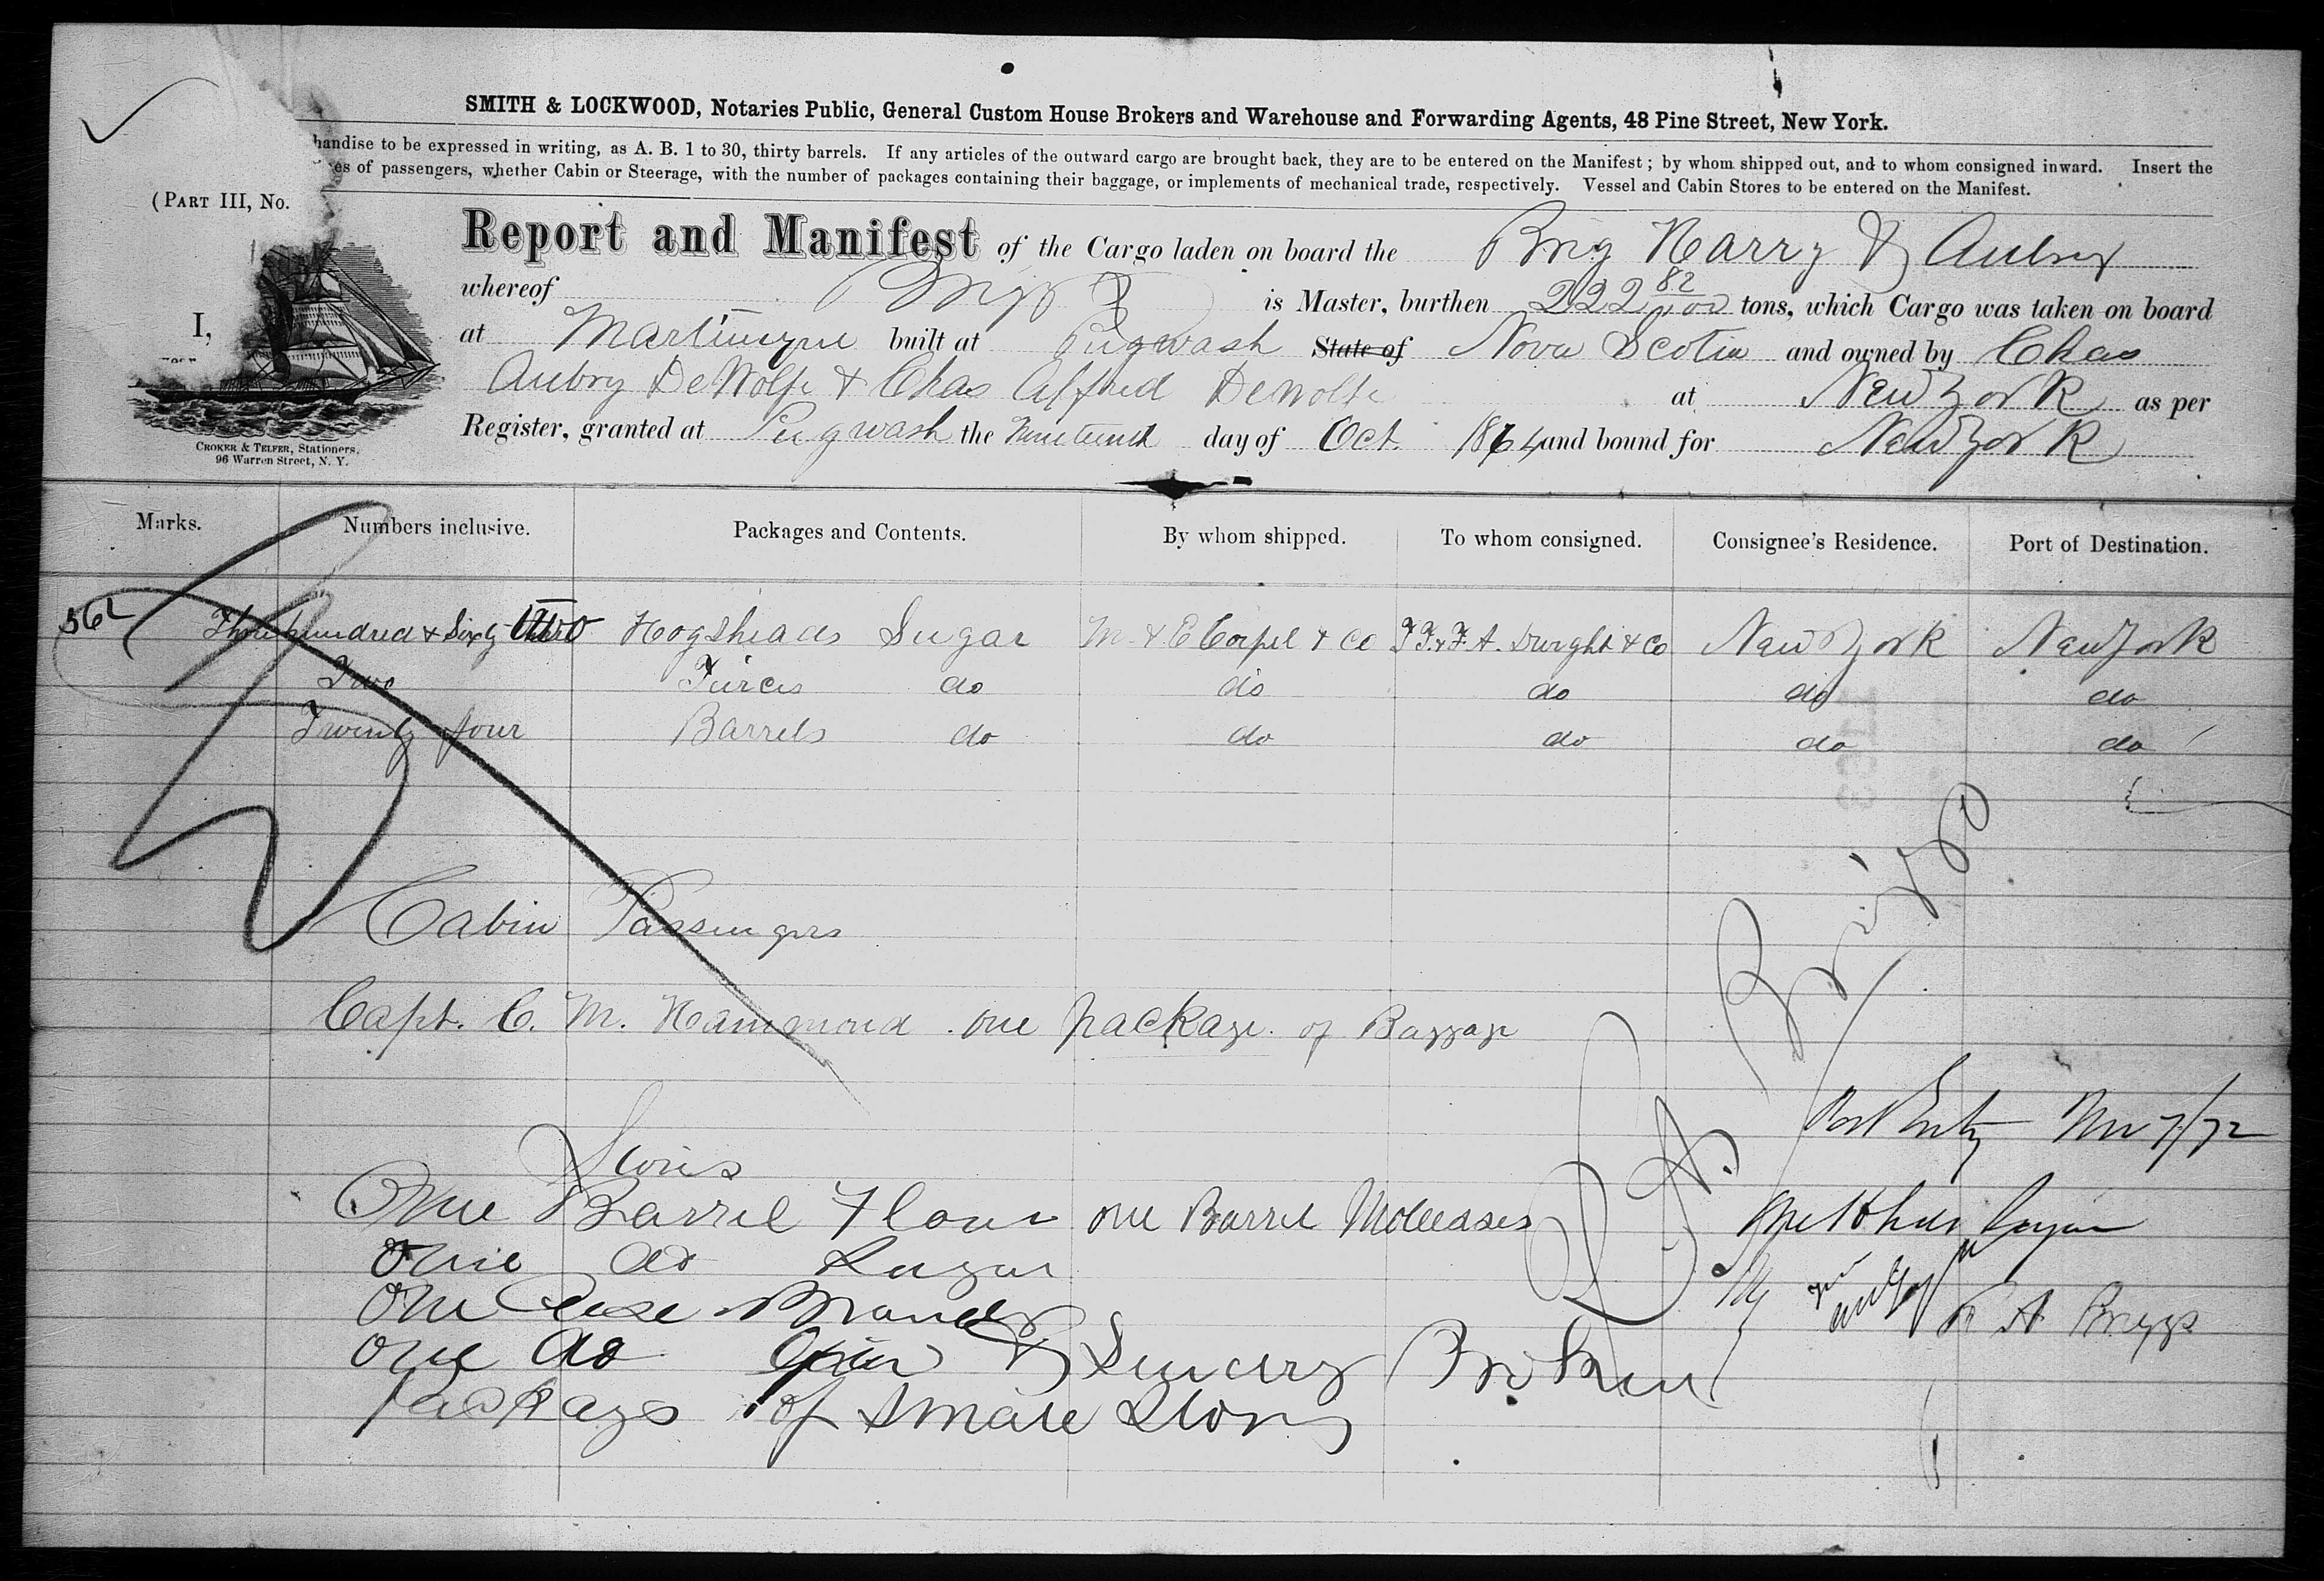 SMITH & LOCKWOOD, Notaries Public, General Custom House Brokers and Warehouse and Forwarding Agents, 48 Pine Street, New York.
handise to be expressed in writing, as A. B. 1 to 30, thirty barrels. If any articles of the outward cargo are brought back, they are to be entered on the Manifest; by whom shipped out, and to whom consigned inward. Insert the
es of passengers, whether Cabin or Steerage, with the number of packages containing their baggage, or implements of mechanical trade, respectively. Vessel and Cabin Stores to be entered on the Manifest.
(PART III, No.
Report and Manifest of the Cargo laden on board the Brig Harry & Aubrey
whereof Briggs is Master, burthen 222 82/100 tons, which Cargo was taken on board
I,
at Martinique built at Pugwash State of Nova Scotia and owned by Chas
Aubry DeWolfe & Chas Alfred DeWolfe at New York as per
Register, granted at Pugwash the Nineteenth day of Oct. 1864 and bound for New York
CROKER & TELFER, Stationers,
96 Warren Street, N. Y.
Marks. Numbers inclusive. Packages and Contents. By whom shipped. To whom consigned. Consignee's Residence. Port of Destination.
362 Three hundred & Sixty two Hogsheads Sugar M & E Corpel & Co J. F. & F. A. Dwight & Co New York New York
Two Tierces do do do do do
Twenty four Barrels do do do do do
Cabin Passengers
Capt. C. M. Hammond. one package of Baggage
Stores
One Barrel Flour one Barrel Molleases
One do Sugar
One Case Brandy
One do Gin & Sundry Broken
Packages of Small Stores
R. A. Briggs
Post Entry Nov 7/72
R A Briggs